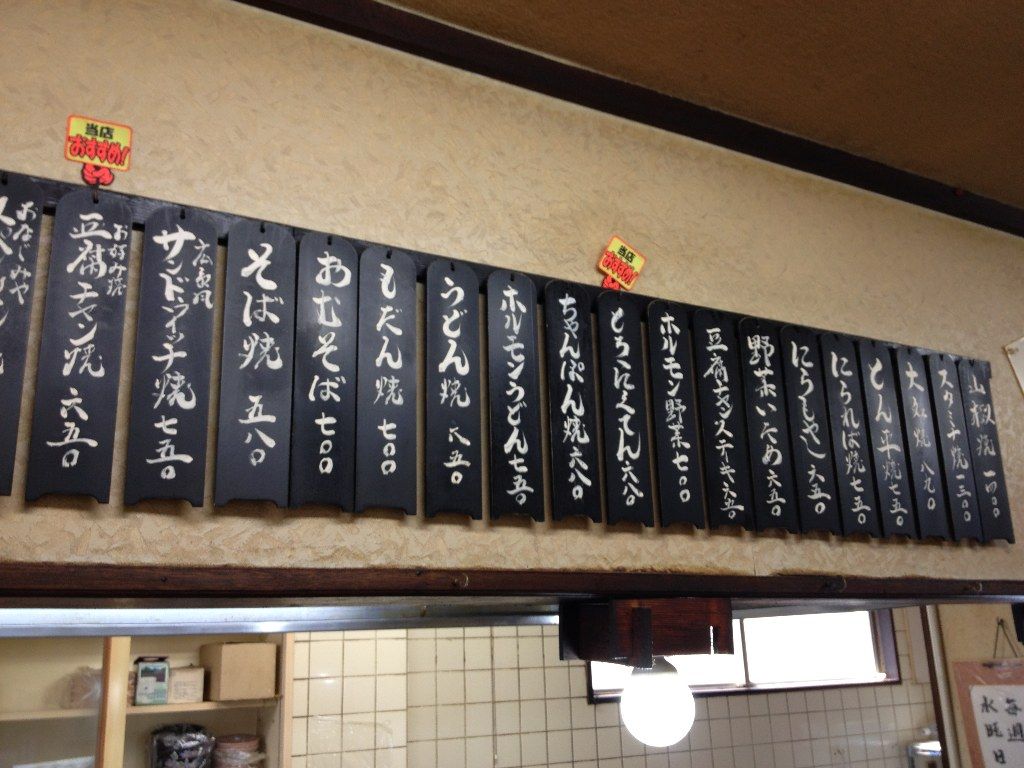 当店
おすすめ!
当店
おすすめ!
おなじみや
お好み焼
豆腐チャン焼 六五〇
広島風
サンドウィッチ焼 七五〇
そば焼 五八〇
おむそば 七〇〇
もだん焼 七〇〇
うどん焼 六五〇
ホルモンうどん 七五〇
ちゃんぽん焼 六八〇
とろろにくてん 六八〇
ホルモン野菜 七〇〇
豆腐チャンステーキ 六五〇
野菜いため 六五〇
にらもやし 六五〇
にられば焼 七五〇
とん平焼 七五〇
大丸焼 八八〇
スタミナ焼 一三〇〇
山椒焼 一四〇〇
毎週
水曜日